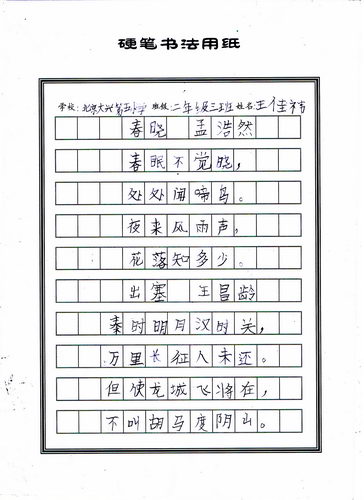 硬笔书法用纸
学校：北京大兴第五小学 班级：二年级三班 姓名：王佳
春晓 孟浩然
春眠不觉晓，
处处闻啼鸟。
夜来风雨声，
花落知多少。
出塞 王昌龄
秦时明月汉时关，
万里长征人未还。
但使龙城飞将在，
不叫胡马度阴山。